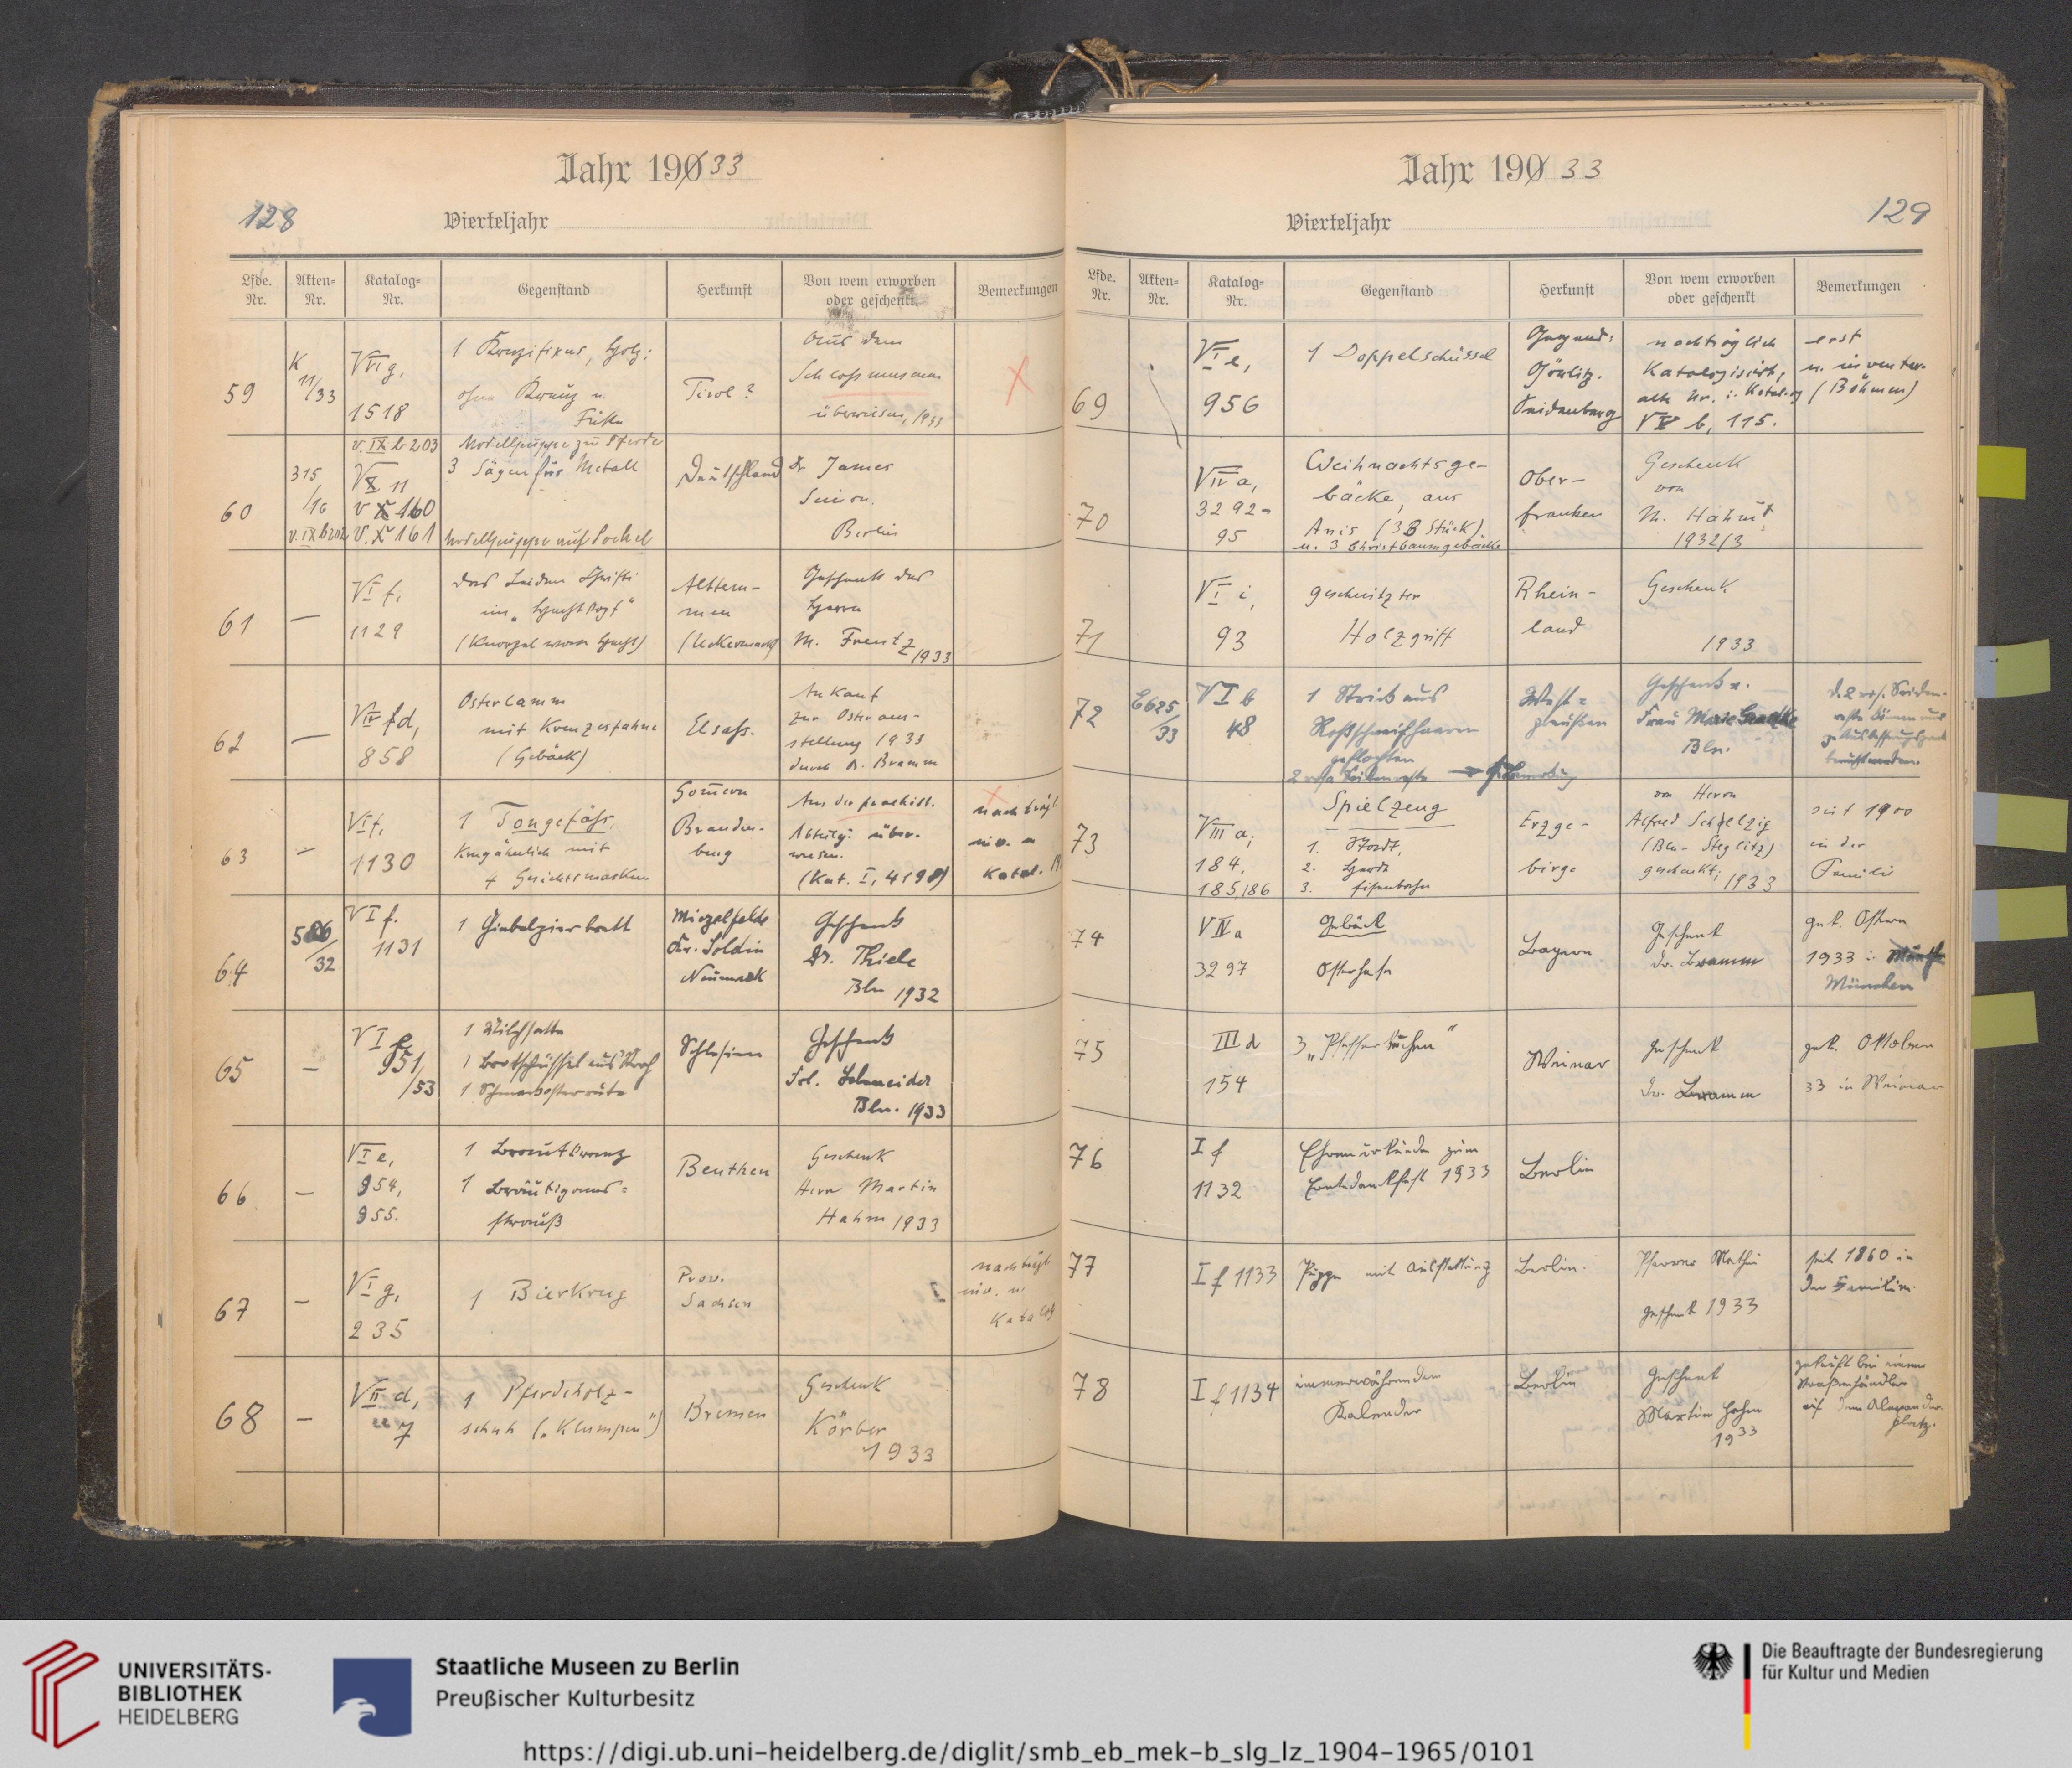 Jahr 19033
128
Vierteljahr
Lfde. Nr.
Akten-Nr.
Katalog-Nr.
Gegenstand
Herkunft
Von wem erworben oder geschenkt
Bemerkungen
59
K 11/33
VII g, 1518
1 Kruzifixus, Holz;
ohne Kreuz u.
Tirol?
Aus dem
Schlossmuseum
überwiesen, 1933
v. IX b 203
Modellpuppe zu Pferde
60
315/16
v. IX b 202
V X 11
v X 160
v. X 161
3 Sägen für Metall
Modellpuppe auf Sockel
Deutschland
Dr James
Simon.
Berlin
61
—
VI f. 1129
Das Leiden Christi
im „Hechtkopf"
Alttem-
men
(Uckermark)
Geschenk des
Herrn
M. Frentz 1933
62
—
858
Osterlamm
mit Kreuzesfahne
(Gebäck)
Elsass.
Ankauf
zur Osteraus-
stellung 1933
durch Dr. Bramm
63
—
VI f, 1130
1 Tongefäss,
Krugähnlich mit
4 Gesichtsmasken.
Gommern
Branden-
burg
Aus der praehist.
Abteilg. über-
wiesen.
(Kat. I, 4198)
nachträgl.
inv. u.
Katal.
64
VI f. 1131
1 Giebelzierbrett
Kr. Soldin
Neumark
Geschenk
Dr. Thiele
Bln 1932
65
—
VI e 951/53
1 Milchsatte
1 Brotschüssel aus Stroh
1 Schmackosterrute
Schlesien
Geschenk
Frl. Schneider
Bln. 1933
66
—
VI e, 954, 955.
1 Brautkranz
1 Bräutigams=
strauß
Beuthen
Geschenk
Herr Martin
Hahm 1933
67
—
VI g, 235
1 Bierkrug
Prov.
Sachsen
nachträgl
inv. u.
Katalog
68
—
VII d, 7
1 Pferdeholz-
schuh („Klumpen")
Bremen
Geschenk
Körber
1933
Jahr 190 33
129
Vierteljahr
Lfde. Nr.
Akten-Nr.
Katalog-Nr.
Gegenstand
Herkunft
Von wem erworben oder geschenkt
Bemerkungen
69
VI e, 956
1 Doppelschüssel
Gegend:
Görlitz.
Seidenberg
nachträglich
Katalogisiert,
alte Nr. i. Katalog
b, 115.
erst
u. inventar.
(Böhmm)
70
VII a, 3292-95
Weihnachtsge-
bäcke, aus
Anis (3 Stück)
u. 3 Christbaumgebäcke
Ober-
franken
Geschenk
von
M. Hahm
1932/3
71
VI i, 93
geschnitzter
Holzgriff
Rhein-
land
Geschenk
1933
72
E 625/33
VI b 48
1 Strick aus
Roßschweifhaaren
geflochten
2 rosa Seidenreste → s. Bemerkung
West=
preußen
Geschenk v.
Frau Marie
Bln.
73
VIII a; 184, 185, 186
Spielzeug
1. Stadt,
2. Herde
3. Eisenbahn
Erzge-
birge
von Herrn
Alfred Schelzig
(Bln-Steglitz)
geschenkt; 1933
seit 1900
in der
Familie
74
VII a 3297
Gebäck
Osterhase
Bayern
Geschenk
Dr. Bramm
gek. Ostern
1933 i.
München
75
III d 154
3 „Pfefferkuchen"
Weimar
Geschenk
Dr. Bramm
gek. Oktober
33 in Weimar
76
I f 1132
Ehrenurkunde zum
Erntedankfest 1933
Berlin
77
I f 1133
Puppe mit Ausstattung
Berlin.
Pfarrer
Geschenk 1933
seit 1860 in
der Familie.
78
I f 1134
immerwährenden
Kalender
Berlin
Geschenk
Martin Hahm
1933
gekauft bei einem
Straßenhändler
auf dem Alexander-
platz.
UNIVERSITÄTS-
BIBLIOTHEK
HEIDELBERG
Staatliche Museen zu Berlin
Preußischer Kulturbesitz
Die Beauftragte der Bundesregierung
für Kultur und Medien
https://digi.ub.uni-heidelberg.de/diglit/smb_eb_mek-b_slg_lz_1904-1965/0101